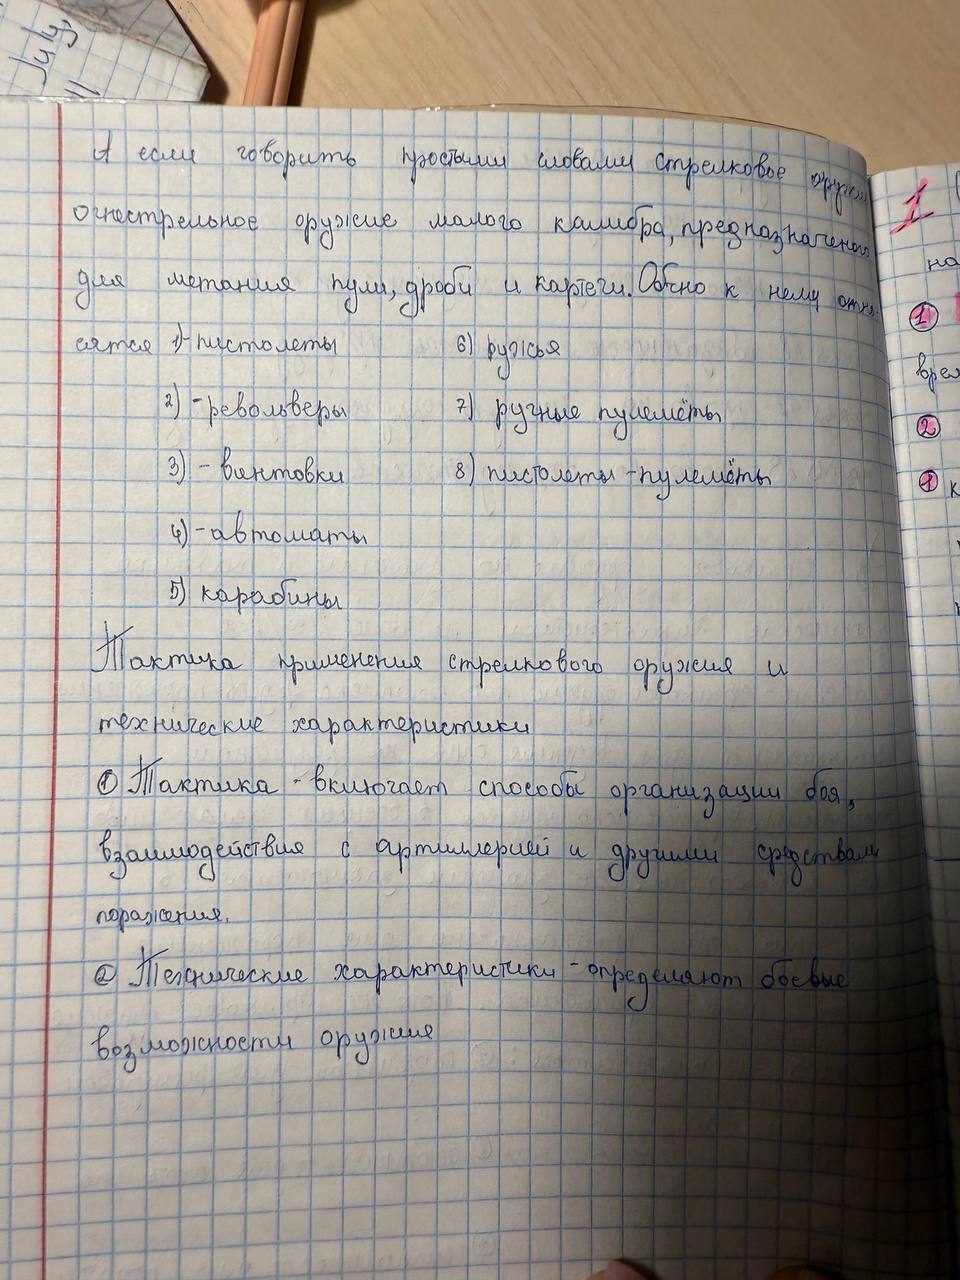 July
11
А если говорить простыми словами стрелковое оружие
огнестрельное оружие малого калибра, предназначеного
для метания пули, дроби и картечи. Обычно к нему отно-
сятся 1)-пистолеты 6) ружья
2) -револьверы 7) ручные пулемёты
3) -винтовки 8) пистолеты-пулемёты
4) -автоматы
5) карабины
Тактика применения стрелкового оружия и
технические характеристики
① Тактика -включает способы организации боя,
взаимодействия с артиллерией и другими средствами
поражения.
② Технические характеристики -определяют боевые
возможности оружия
1
на
①
врем
②
①